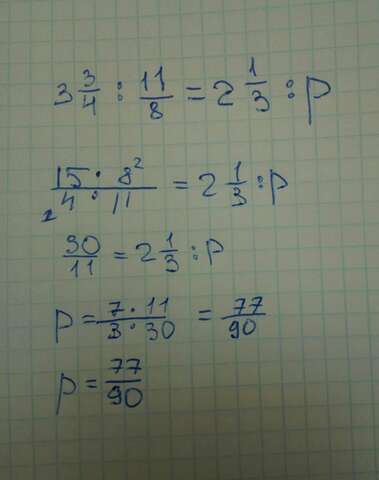 3 3/4 : 11/8 = 2 1/3 : p
15 · 8² / ₁4 · 11 = 2 1/3 : p
30/11 = 2 1/3 : p
p = 7 · 11 / 3 · 30 = 77/90
p = 77/90